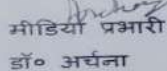 मीडिया प्रभारी
डॉ० अर्चना